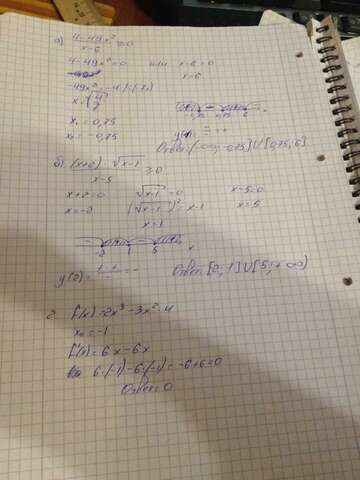 а) (4-49x²)/(x-6) ≥0
4-49x²=0 или x-6=0
x=6
-49x²=-4
x₁=0,75
x₂=-0,75
Ответ: (-∞; -0,75]∪[0,75; 6]
б) (x+2)·√x-1 / x-5 ≥0
x+2=0 √x-1=0 x-5=0
x=-2 (√x-1)²=x-1 x=5
x=1
-2 1 5 x
Ответ: ∪[5; +∞)
f(x)=2x³-3x²-4
x₀=-1
f'(x)=6x-6x
6·(-1)-6·(-1)=-6+6=0
Ответ: 0